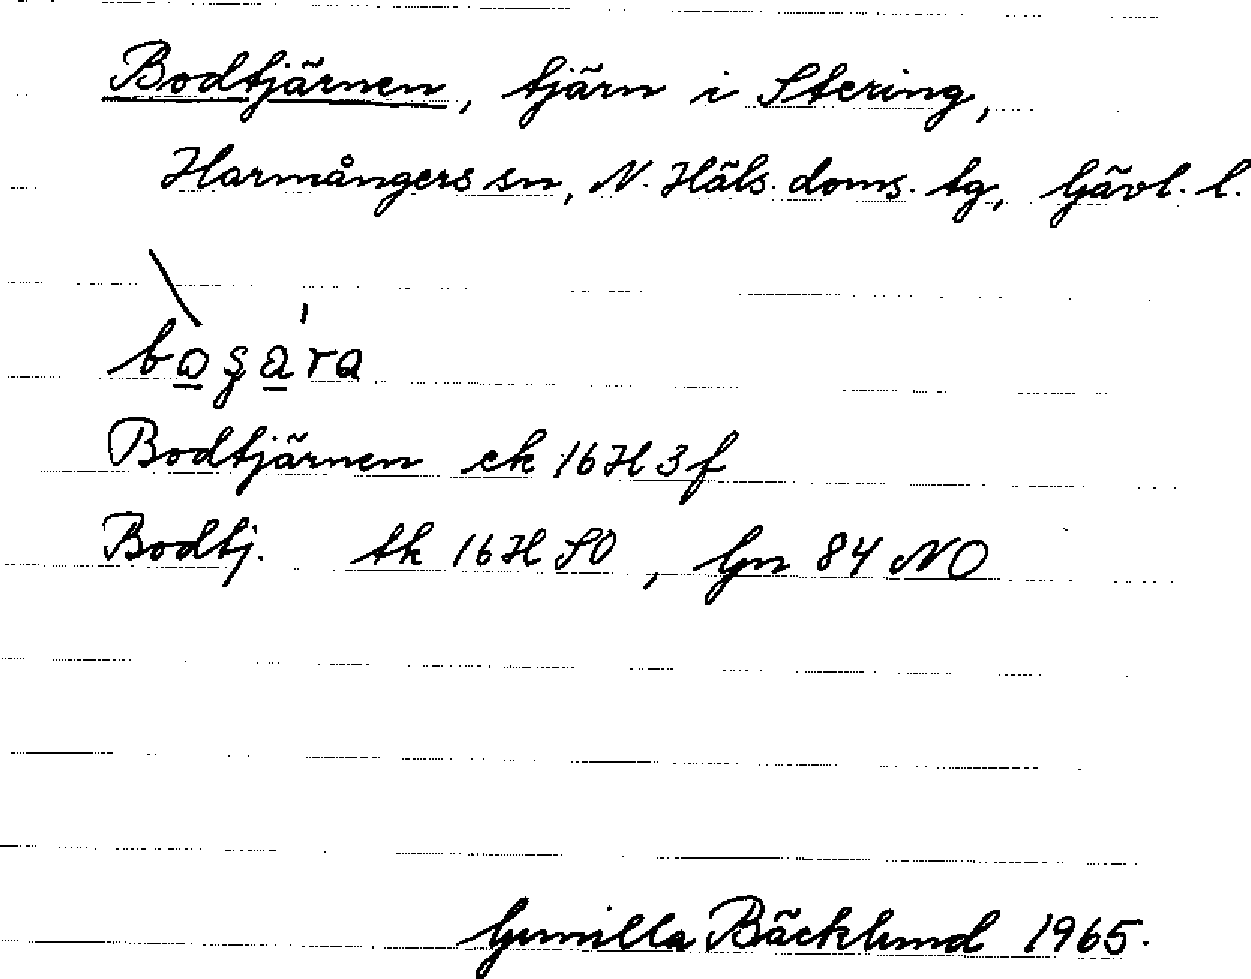 Bodtjärnen, tjärn i Stering,
Harmångers sn, N. Häls. doms. tg, Gävl. l.
Bodtjärnen ek 16H 3f
Bodtj. tk 16H SO, Gn 84 NO
Gunilla Bäcklund 1965.